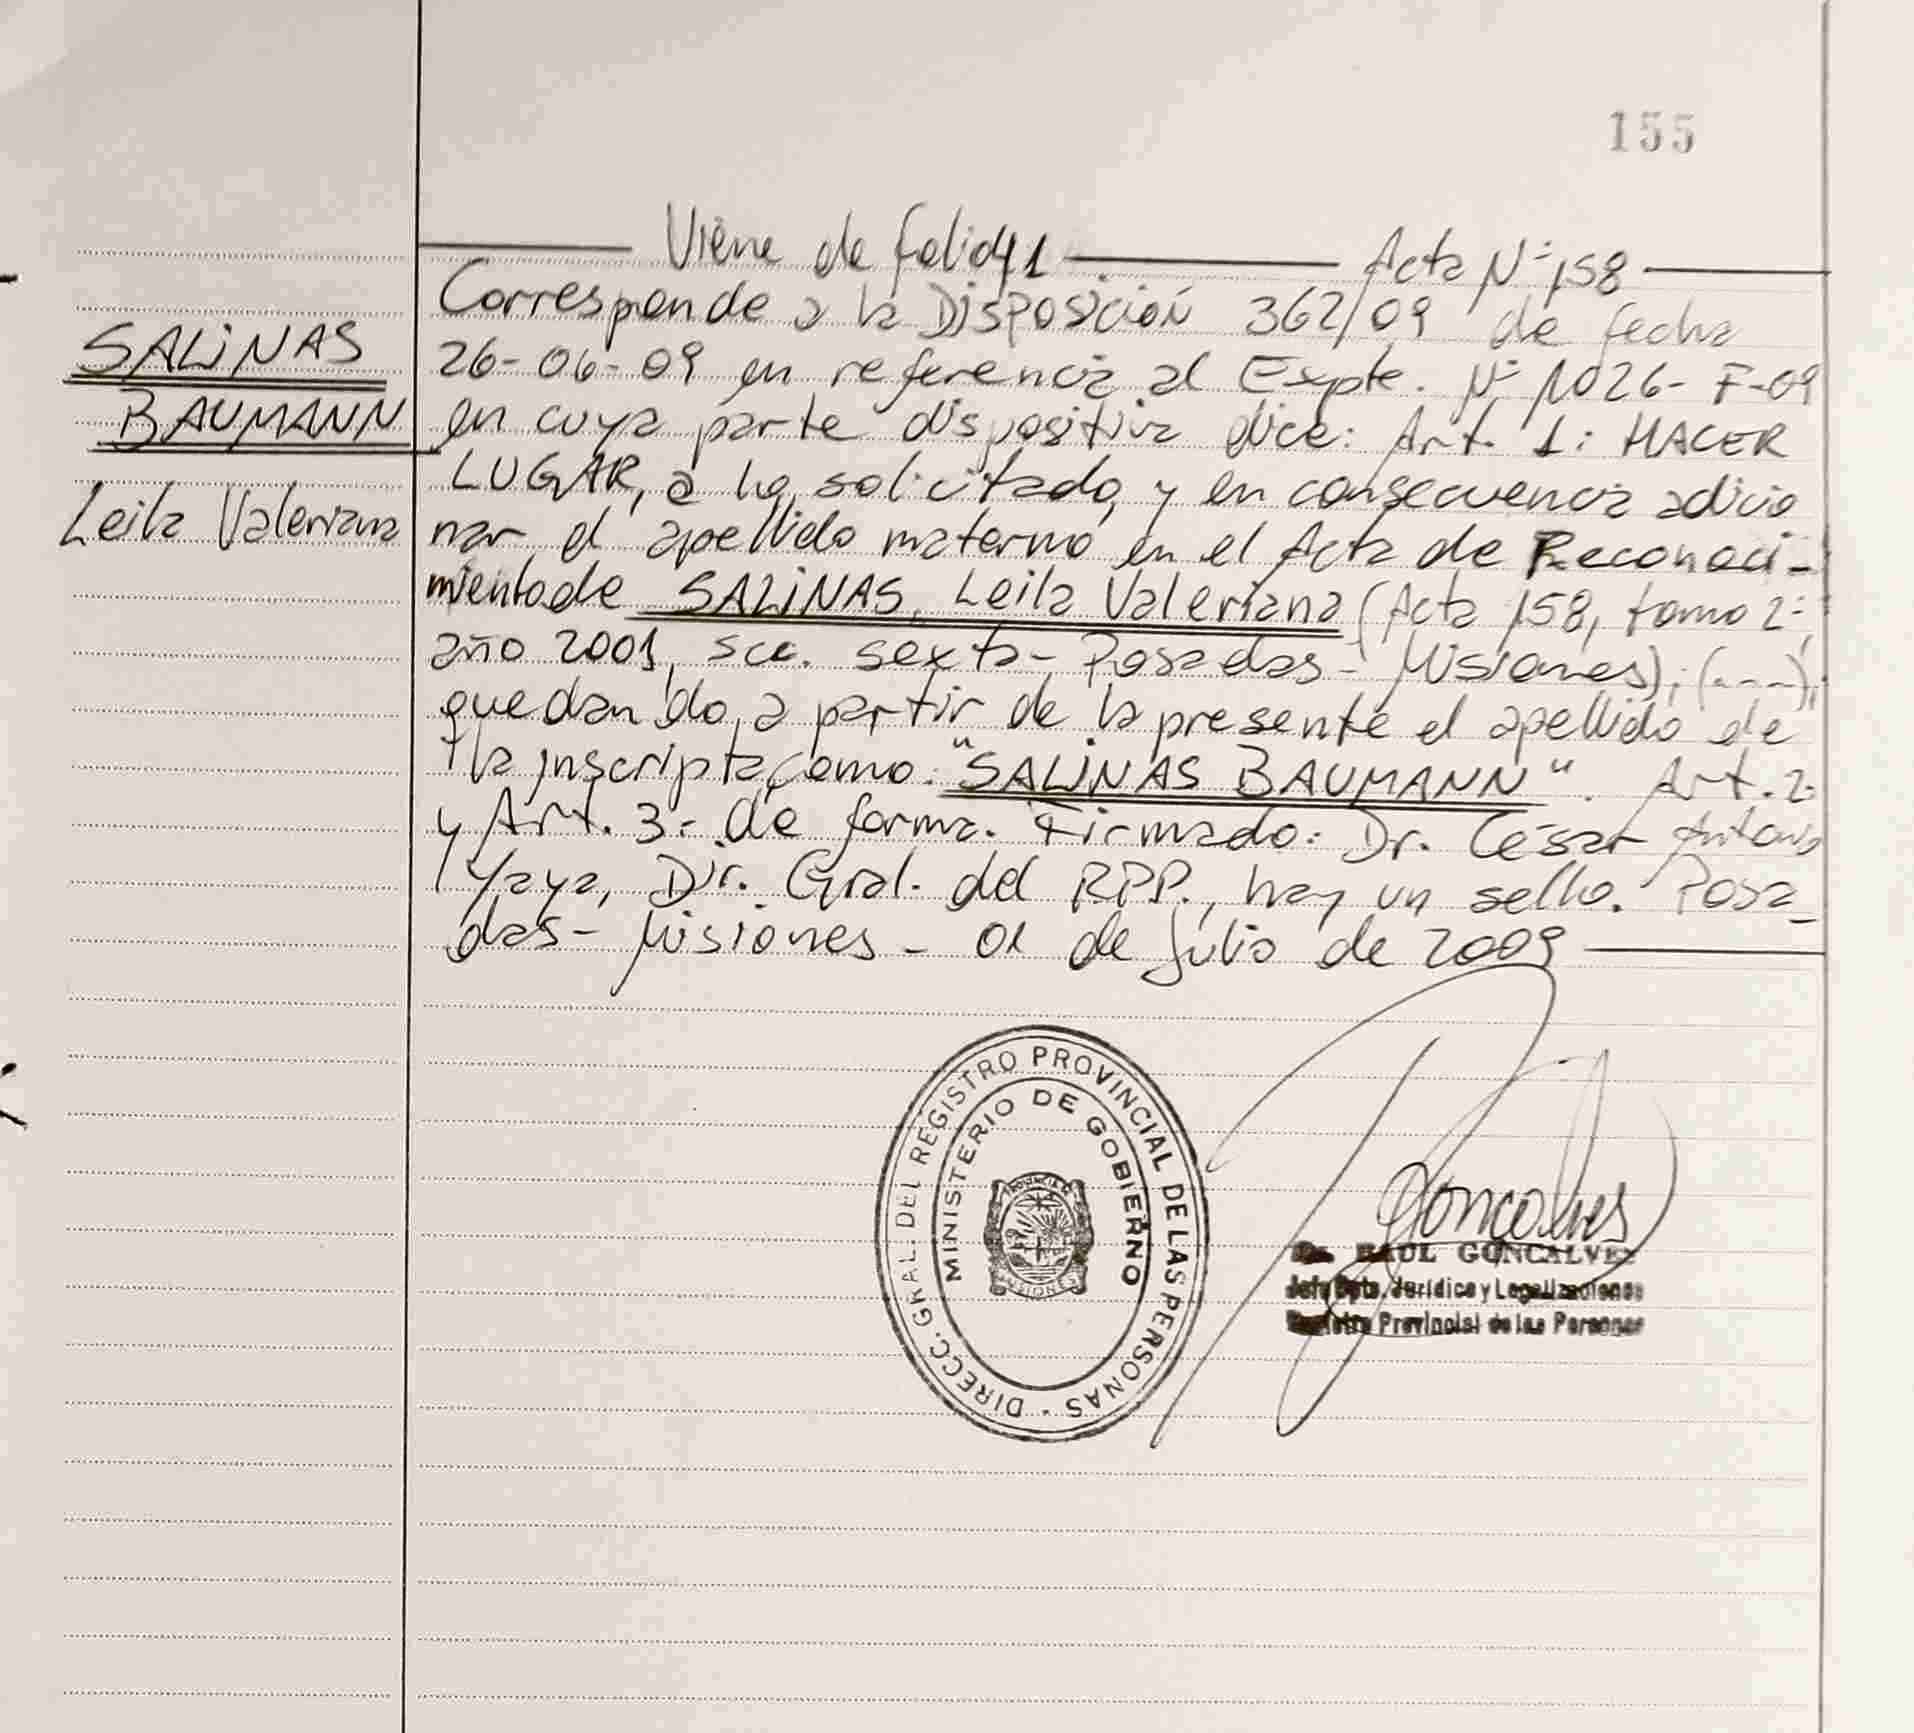 155
Viene de folio 41 Acta Nº 158
SALINAS
BAUMANN
Leila Valeriana
Corresponde a la Disposición 362/09 de fecha
26-06-09 en referencia al Expte. Nº 1026-F-09
en cuya parte dispositiva dice: Art. 1: HACER
LUGAR, a lo solicitado, y en consecuencia adicio
nar el apellido materno en el Acta de Reconoci-
miento de SALINAS, Leila Valeriana (Acta 158, tomo 2º,
año 2001, scc. sexta - Posadas - Misiones); (----);
quedando a partir de la presente el apellido de
la inscripta como: "SALINAS BAUMANN". Art. 2-
y Art. 3.- de forma. Firmado: Dr. César Antonio
Yaya, Dir. Gral. del RPP., hay un sello. Posa_
das - Misiones - 01 de Julio de 2009
DIRECC. GRAL. DEL REGISTRO PROVINCIAL DE LAS PERSONAS -
MINISTERIO DE GOBIERNO
PROVINCIA D
MISIONES
Goncalves
Dr. RAUL GONCALVES
Jefe Dpto. Jurídico y Legalizaciones
Registro Provincial de las Personas